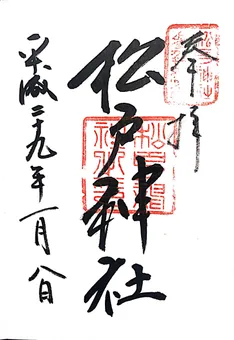 奉拝
松戸神社
平成二十九年一月八日